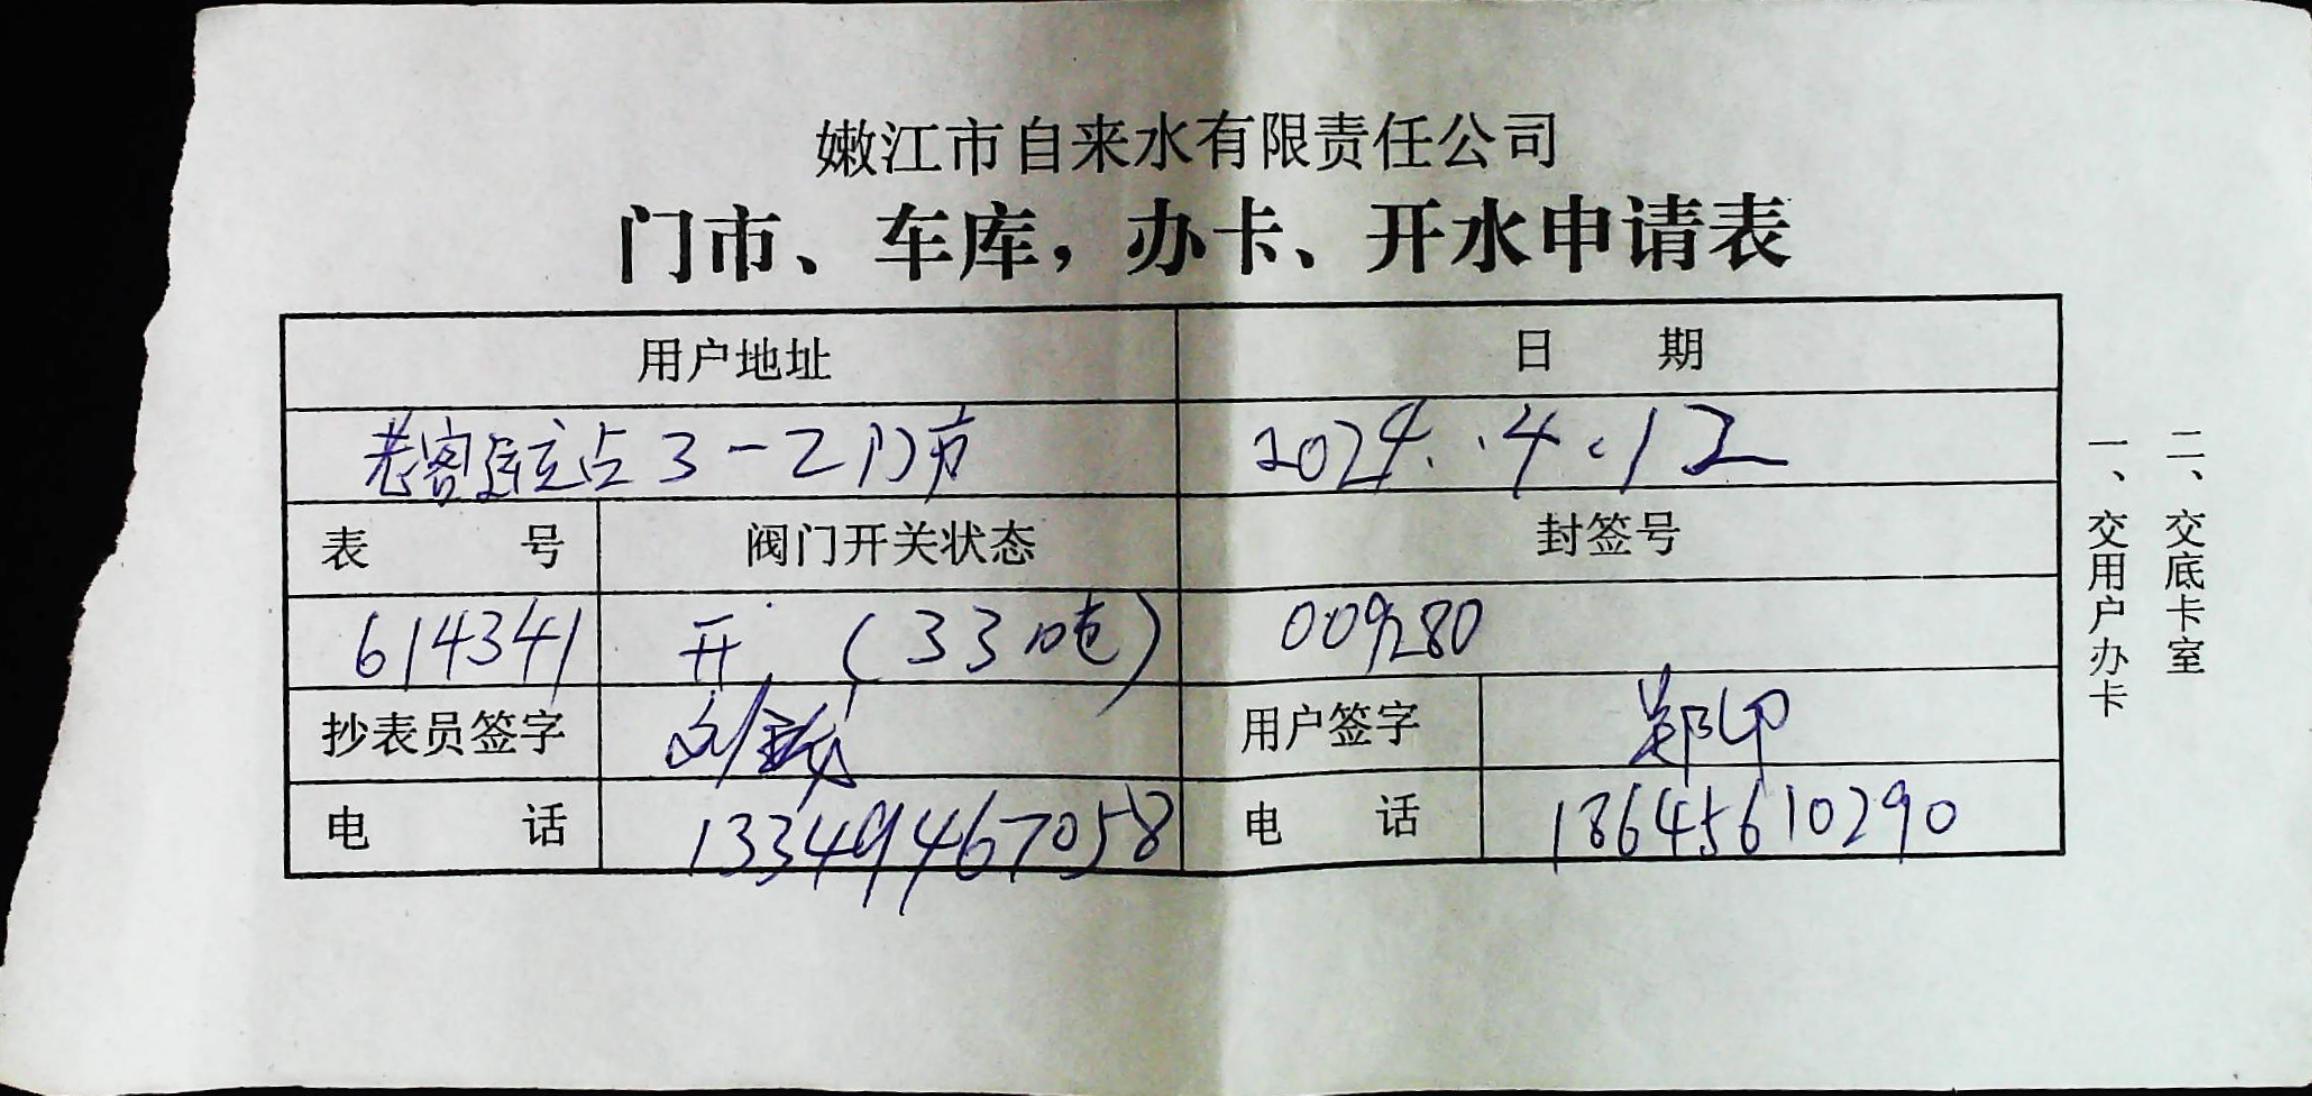 嫩江市自来水有限责任公司
门市、车库，办卡、开水申请表
用户地址 日 期
老客运站 3-2门市 2024.4.12
表 号 阀门开关状态 封签号
614341 开 (33吨) 009280
抄表员签字 刘 用户签字 郑
电 话 13349467058 电 话 18645610290
一、交用户办卡
二、交底卡室